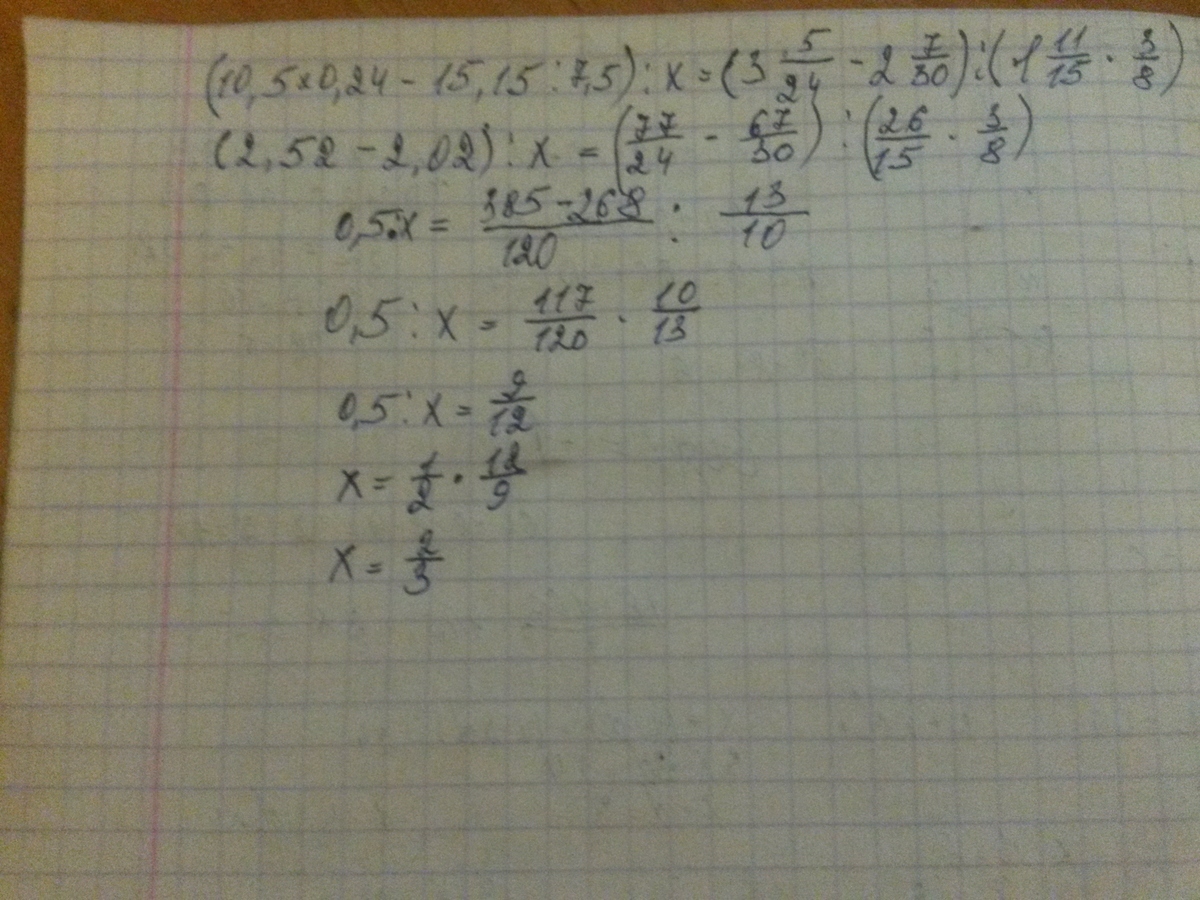 (10,5×0,24 - 15,15:7,5):x=(3 5/24 - 2 7/30):(1 11/15 · 3/8)
(2,52 - 2,02):x = (77/24 - 67/30) : (26/15 · 3/8)
0,5:x = 385-268/120 : 13/10
0,5:x = 117/120 · 10/13
0,5:x = 9/12
x = 1/2 · 12/9
x = 2/3